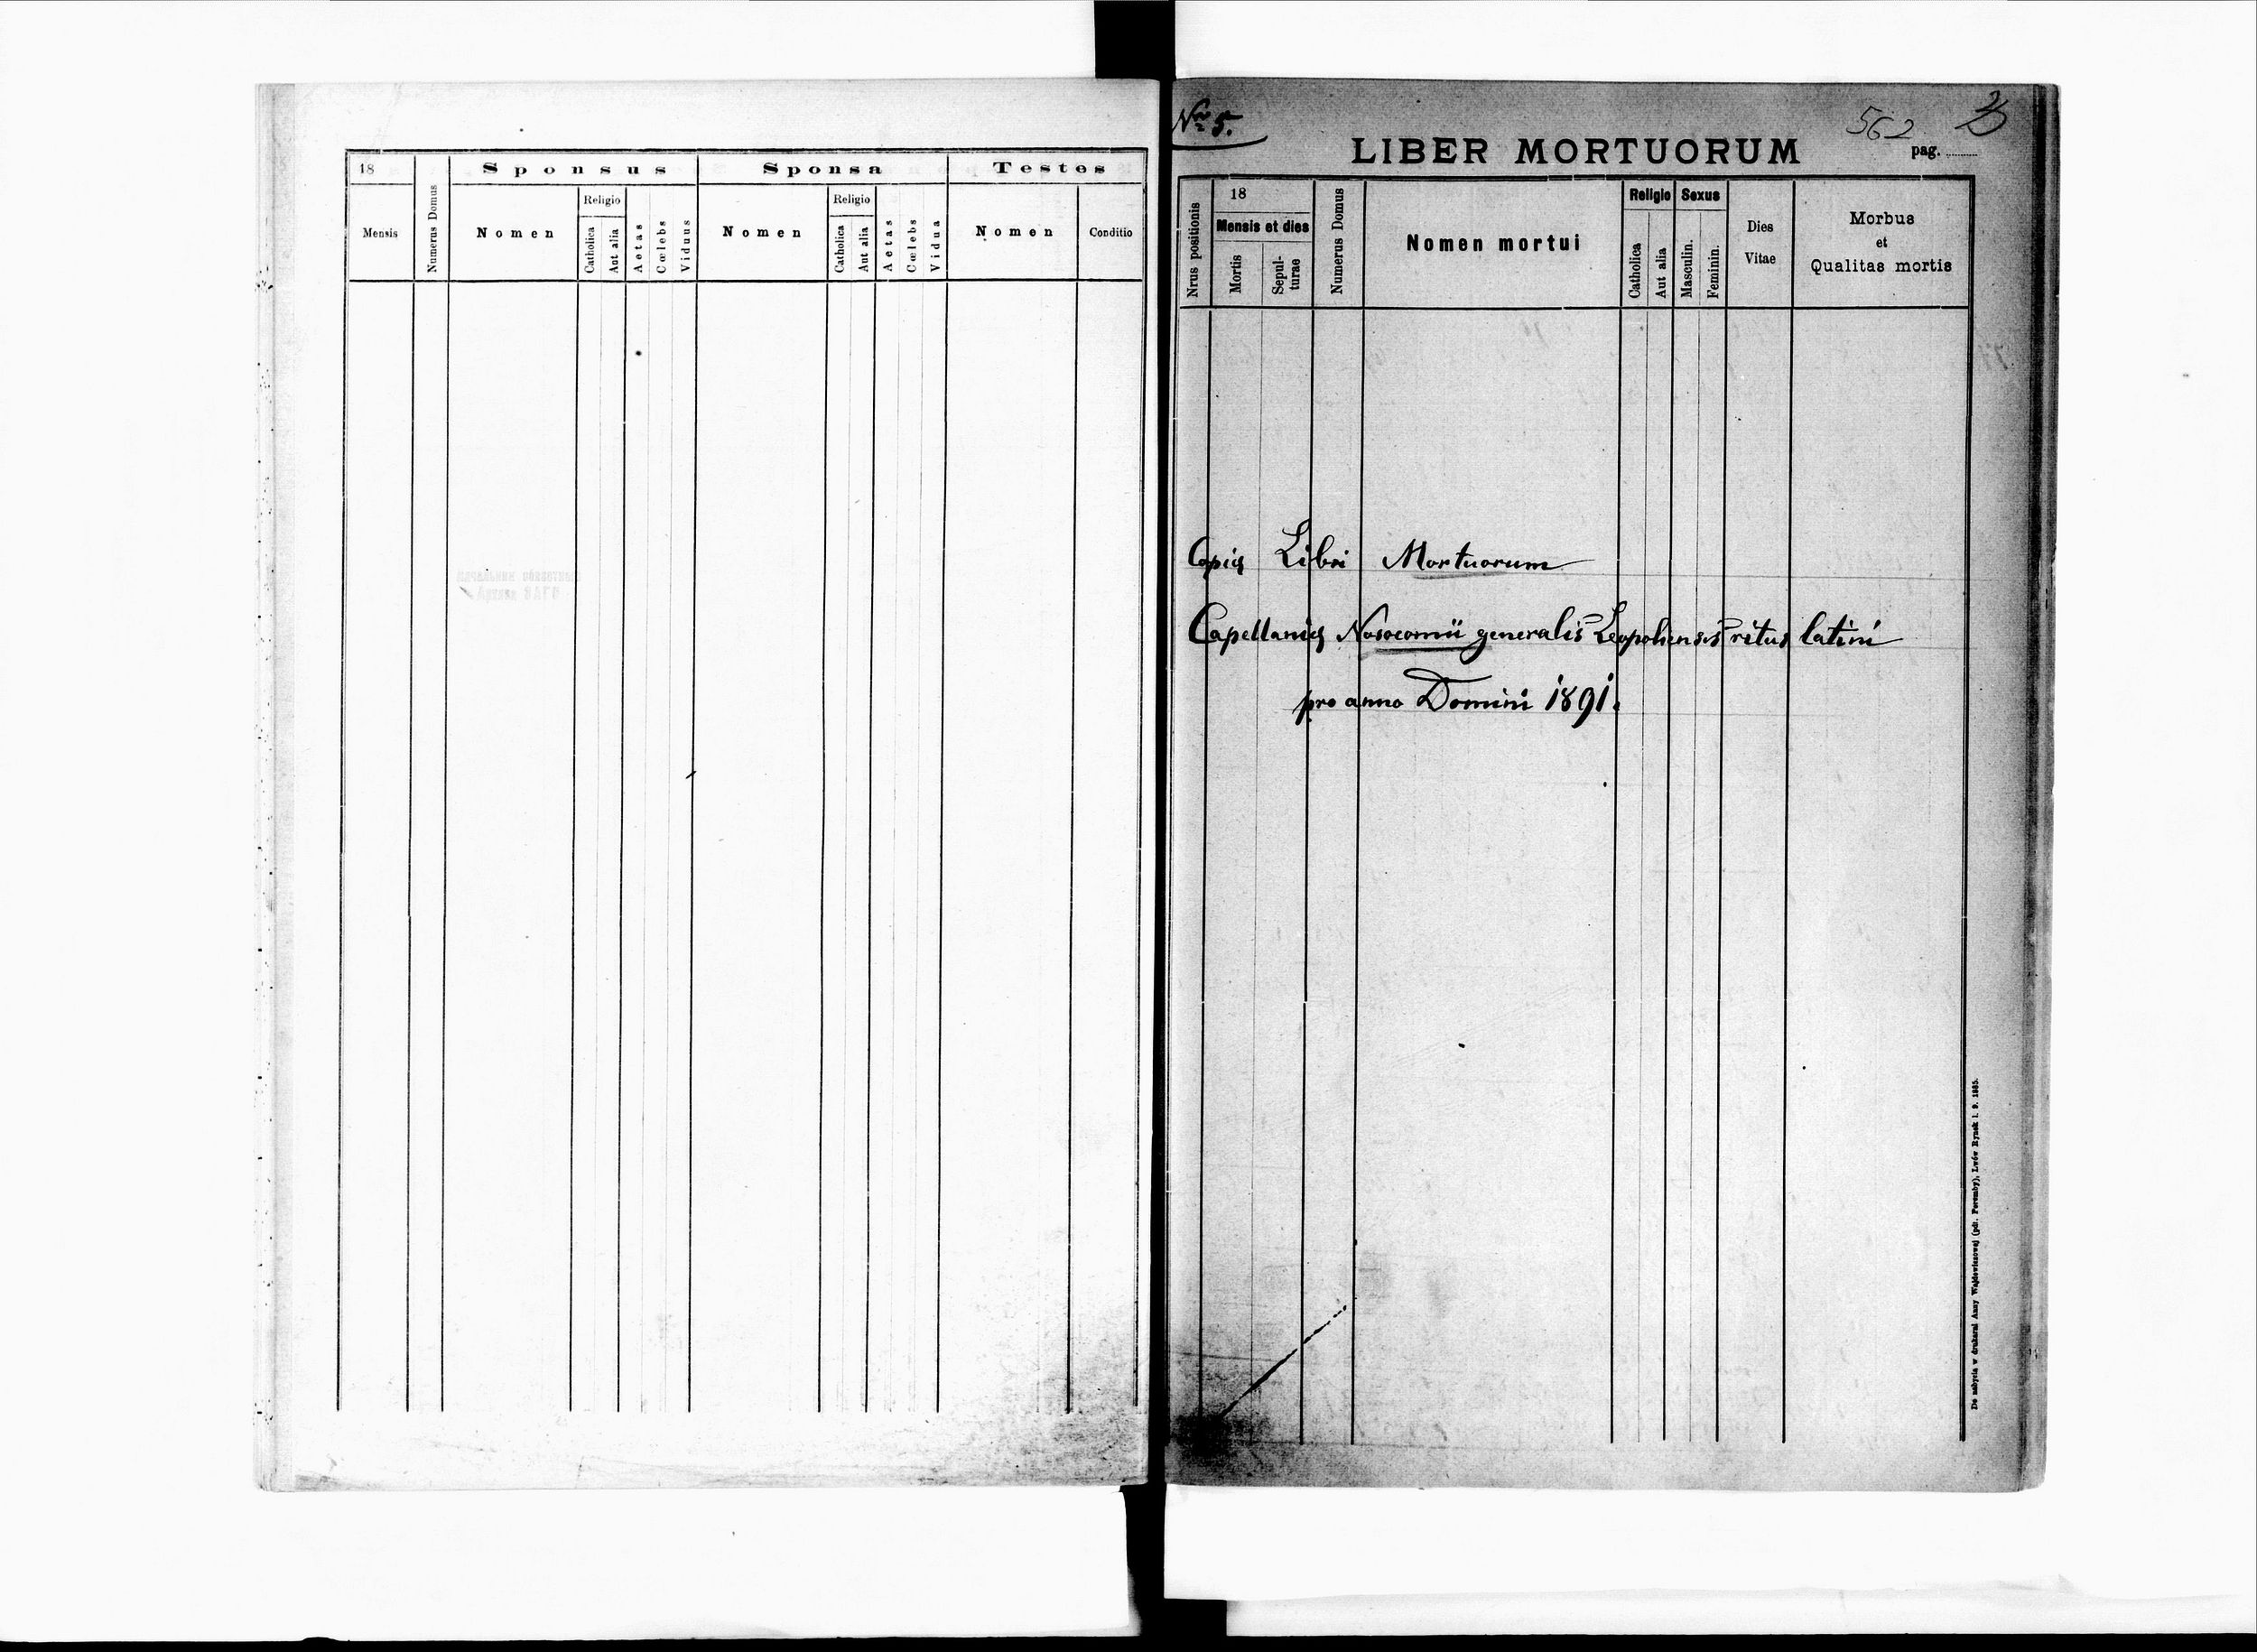 18
Mensis
Numerus Domus
Sponsus
Nomen
Religio
Catholica
Aut alia
Aetas
Cœlebs
Viduus
Sponsa
Nomen
Religio
Catholica
Aut alia
Aetas
Cœlebs
Vidua
Testes
Nomen
Conditio
Nro 5.
562
LIBER MORTUORUM
pag.
Nrus positionis
18
Mensis et dies
Mortis
Sepul-
turae
Numerus Domus
Nomen mortui
Religio
Catholica
Aut alia
Sexus
Masculin.
Feminin.
Dies
Vitae
Morbus
et
Qualitas mortis
Copia Libri Mortuorum
Capellaniae Nosocomii generalis Leopoliensis ritus latini
pro anno Domini 1891.
Do nabycia w drukarni Anny Wajdowiczowej (pdz. Poremby), Lwów Rynek l. 9. 1885.